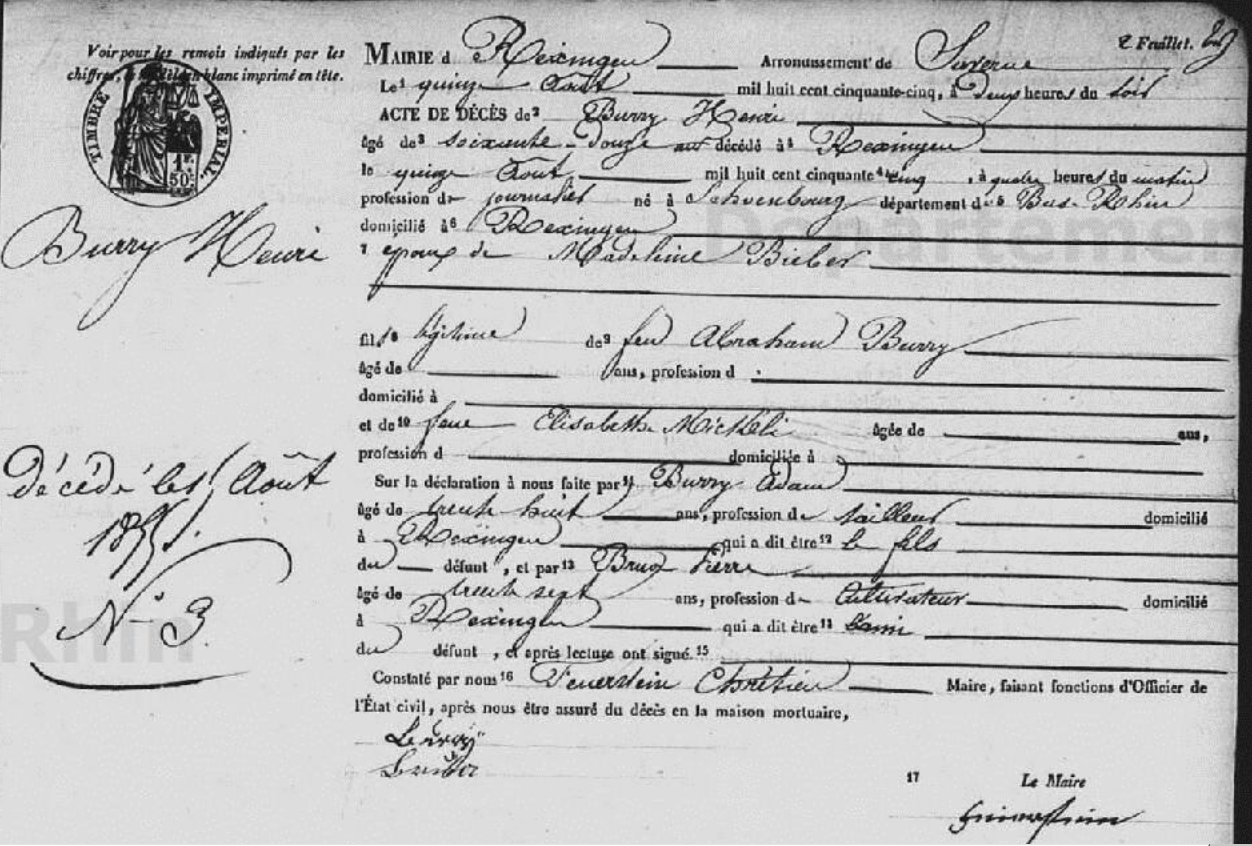 Voir pour les renvois indiqués par les
chiffres, le blanc imprimé en tête.
TIMBRE IMPERIAL
1 F.
50 C.
2 Feuillet.
MAIRIE d Rexingen Arrondissement de Saverne
Le 1 quinze Août mil huit cent cinquante-cinq, à Deux heures du soir
ACTE DE DÉCÈS de 2 Burry Henri
âgé de 3 soixante-Douze ans décédé à 4 Rexingen
le quinze Août mil huit cent cinquante cinq, à quatre heures du matin
profession de journalier né à Schoenbourg département du 5 Bas-Rhin
domicilié à 6 Rexingen
7 époux de Madeleine Bieber
Burry Henri
fils 8 légitime de 9 feu Abraham Burry
âgé de ans, profession d
domicilié à
et de 10 feue Elisabethe Mickeli âgée de ans,
profession d domiciliée à
Sur la déclaration à nous faite par 11 Burry Adam
âgé de trente huit ans, profession de tailleur domicilié
à Rexingen qui a dit être 12 le fils
du défunt, et par 13 Pierre
âgé de trente sept ans, profession de Cultivateur domicilié
à Rexingen qui a dit être 13 l'ami
du défunt, et après lecture ont signé. 15
Constaté par nous 16 Feuerstein Chrétien Maire, faisant fonctions d'Officier de
l'État civil, après nous être assuré du décès en la maison mortuaire,
17 Le Maire
Décédé le 15 Août
1855.
N° 3
Departemen
Rhin